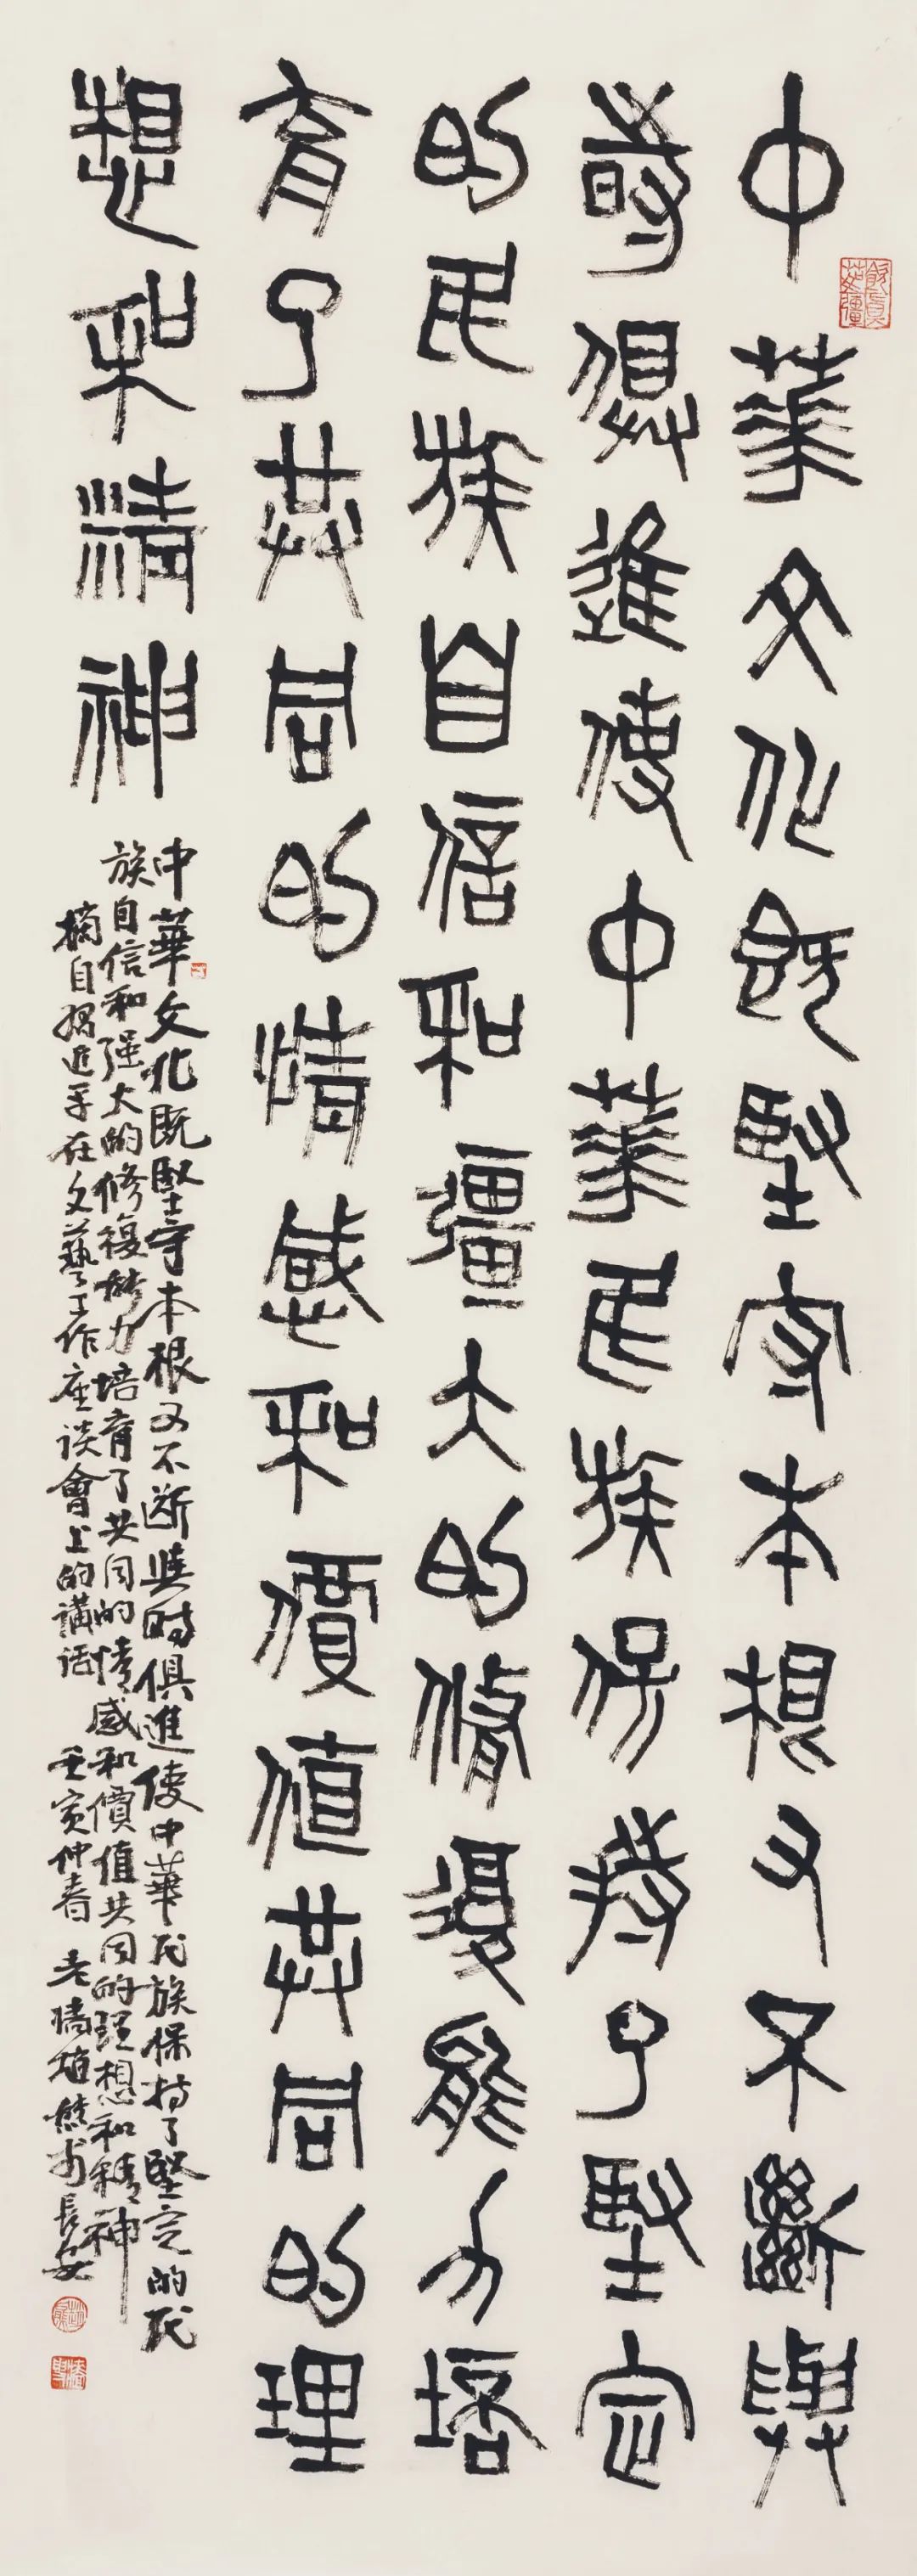 中華文化既堅守本根又不斷與
時俱進使中華民族保持了堅定
的民族自信和彊大的修復能力培
育了共同的情感和價值共同的理
想和精神
中華文化既堅守本根又不斷與時俱進使中華民族保持了堅定的民
族自信和强大的修復能力培育了共同的情感和價值共同的理想和精神
摘自習近平在文藝工作座談會上的講話 壬寅仲春 老墻植 書長安